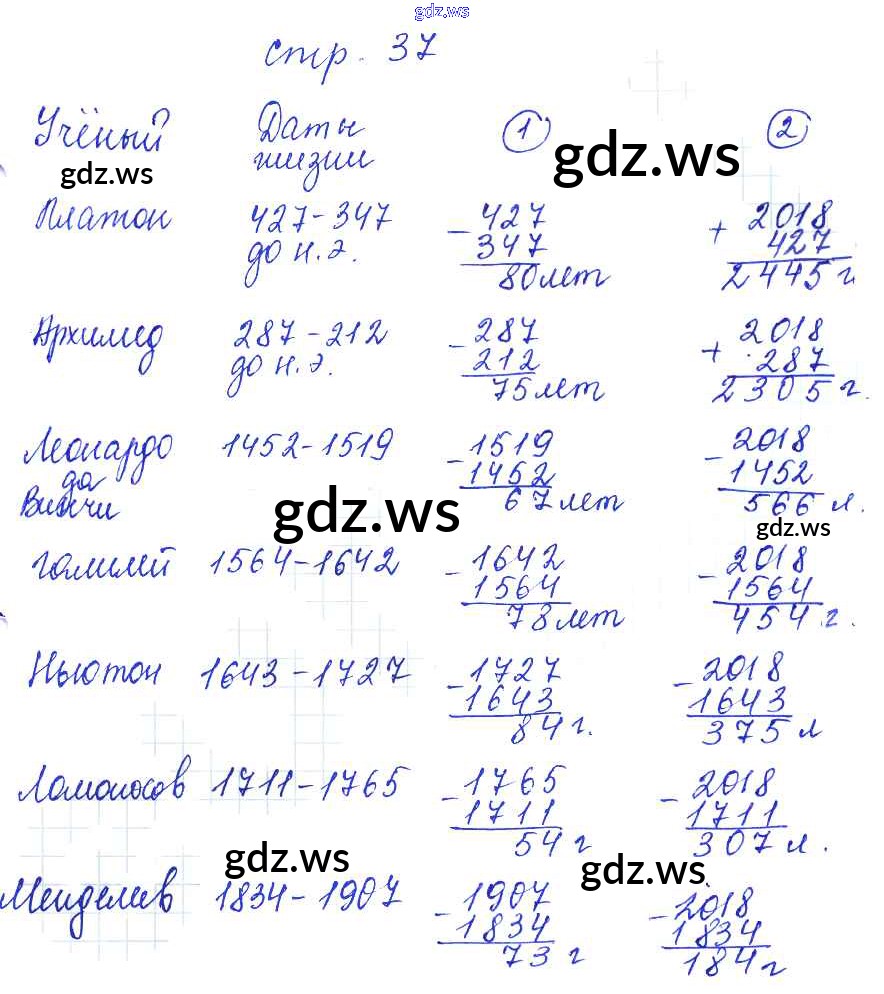 gdz.ws
стр. 37
Учёный Даты жизни 1 2
gdz.ws
gdz.ws
Платон 427-347 - 427 + 2018
до н.э. 347 427
80 лет 2445 г
Архимед 287-212 - 287 + 2018
до н.э. 212 287
75 лет 2305 г.
Леонардо 1452-1519 - 1519 - 2018
да 1452 1452
Винчи 67 лет 566 л.
gdz.ws
gdz.ws
Галилей 1564-1642 - 1642 - 2018
1564 1564
78 лет 454 г.
Ньютон 1643-1727 - 1727 - 2018
1643 1643
84 г. 375 л
Ломоносов 1711-1765 - 1765 - 2018
1711 1711
54 г 307 л.
gdz.ws
gdz.ws
Менделеев 1834-1907 - 1907 - 2018
1834 1834
73 г 184 г